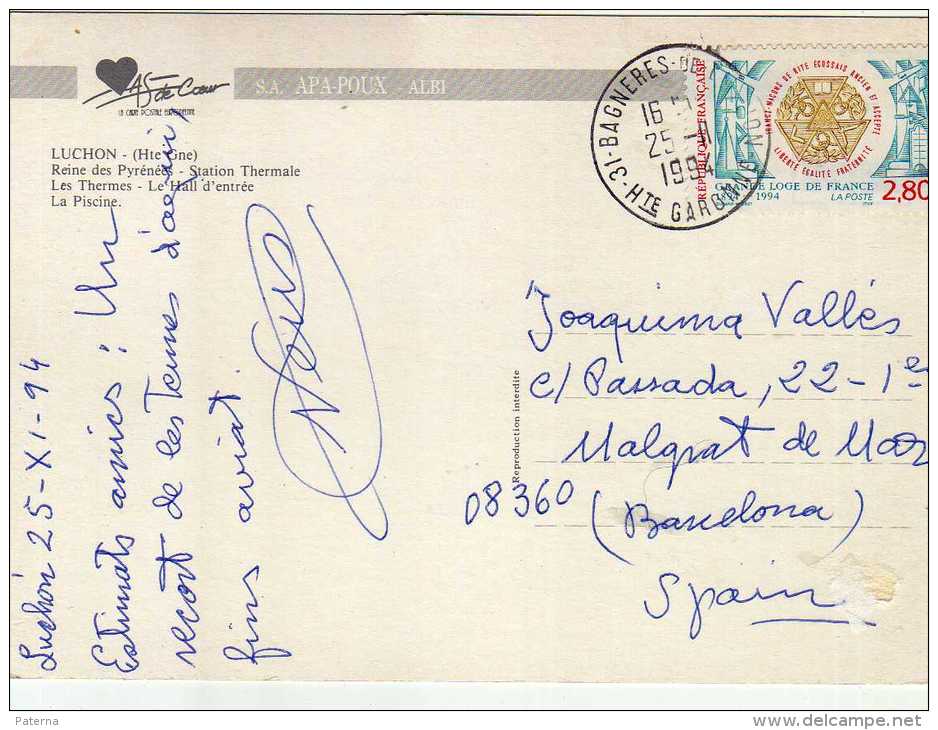 AS de Cœur
LA CARTE POSTALE EUROPEENNE
S.A. APA-POUX - ALBI
LUCHON - (Hte Gne)
Reine des Pyrénées - Station Thermale
Les Thermes - Le Hall d'entrée
La Piscine.
Luchon 25-XI-94
Estimats amics: Un
record de les Termes d'aquí,
fins aviat.
Reproduction interdite
31-BAGNERES-DE
16
25-11
1994
HTE GARONNE
RÉPUBLIQUE FRANÇAISE
FRANCS-MAÇONS DE RITE ECOSSAIS ANCIEN ET ACCEPTE
LIBERTE EGALITE FRATERNITE
GRANDE LOGE DE FRANCE
1994
LA POSTE
2,80
Joaquima Vallés
c/ Passada, 22-1er
Malgrat de Mar
08360
(Barcelona)
Spain
Paterna
www.delcampe.net